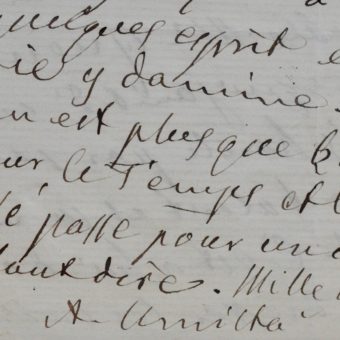 quelques esprit e
rie y damine.
n est plus que
ur, le Temps et
e passe pour un
aut dire. Mille
A